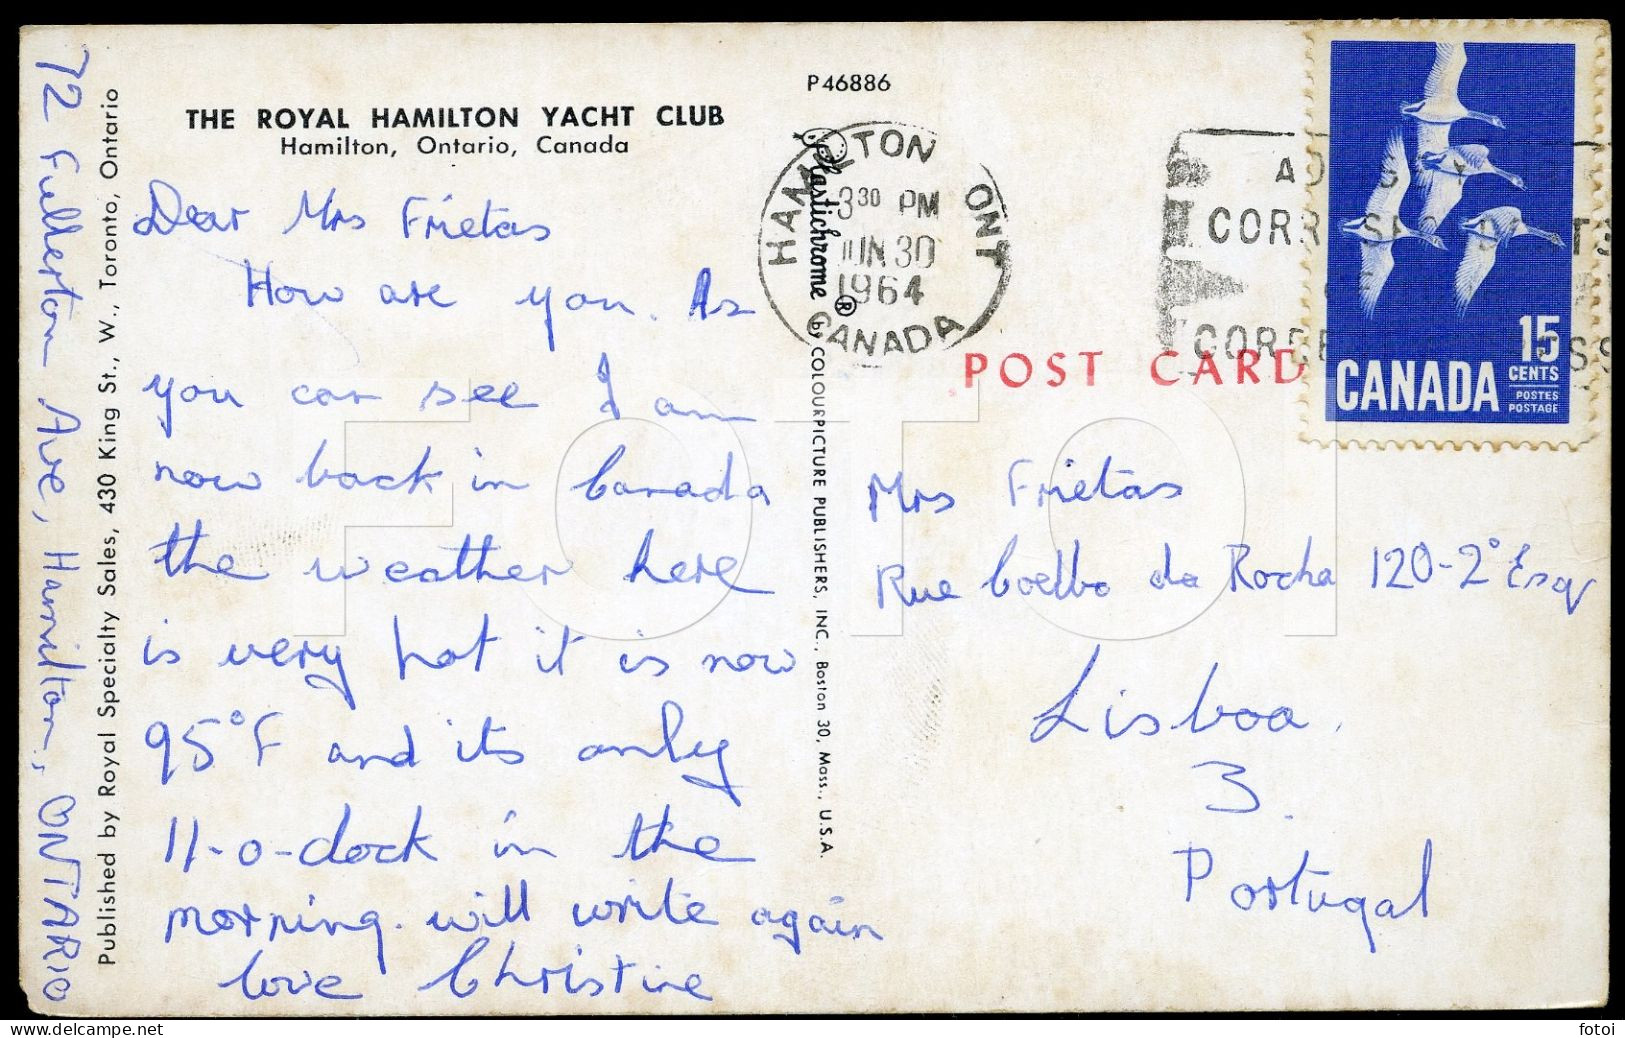 THE ROYAL HAMILTON YACHT CLUB
Hamilton, Ontario, Canada
Dear Mrs Frietas
How are you. As
you can see I am
now back in Canada
the weather here
is very hot it is now
95°F and its only
11-o-clock in the
morning. will write again
love Christine
72 Fullerton Ave, Hamilton, ONTARIO
Published by Royal Specialty Sales, 430 King St., W., Toronto, Ontario
P46886
Plastichrome ® by COLOURPICTURE PUBLISHERS, INC., Boston 30, Mass., U.S.A.
HAMILTON ONT
3 30 PM
JUN 30
1964
CANADA
POST CARD
15
CENTS
CANADA
POSTES
POSTAGE
Mrs Frietas
Rue Coelbo da Rocha 120-2° Esq
Lisboa.
3.
Portugal
FOTOI
fotoi